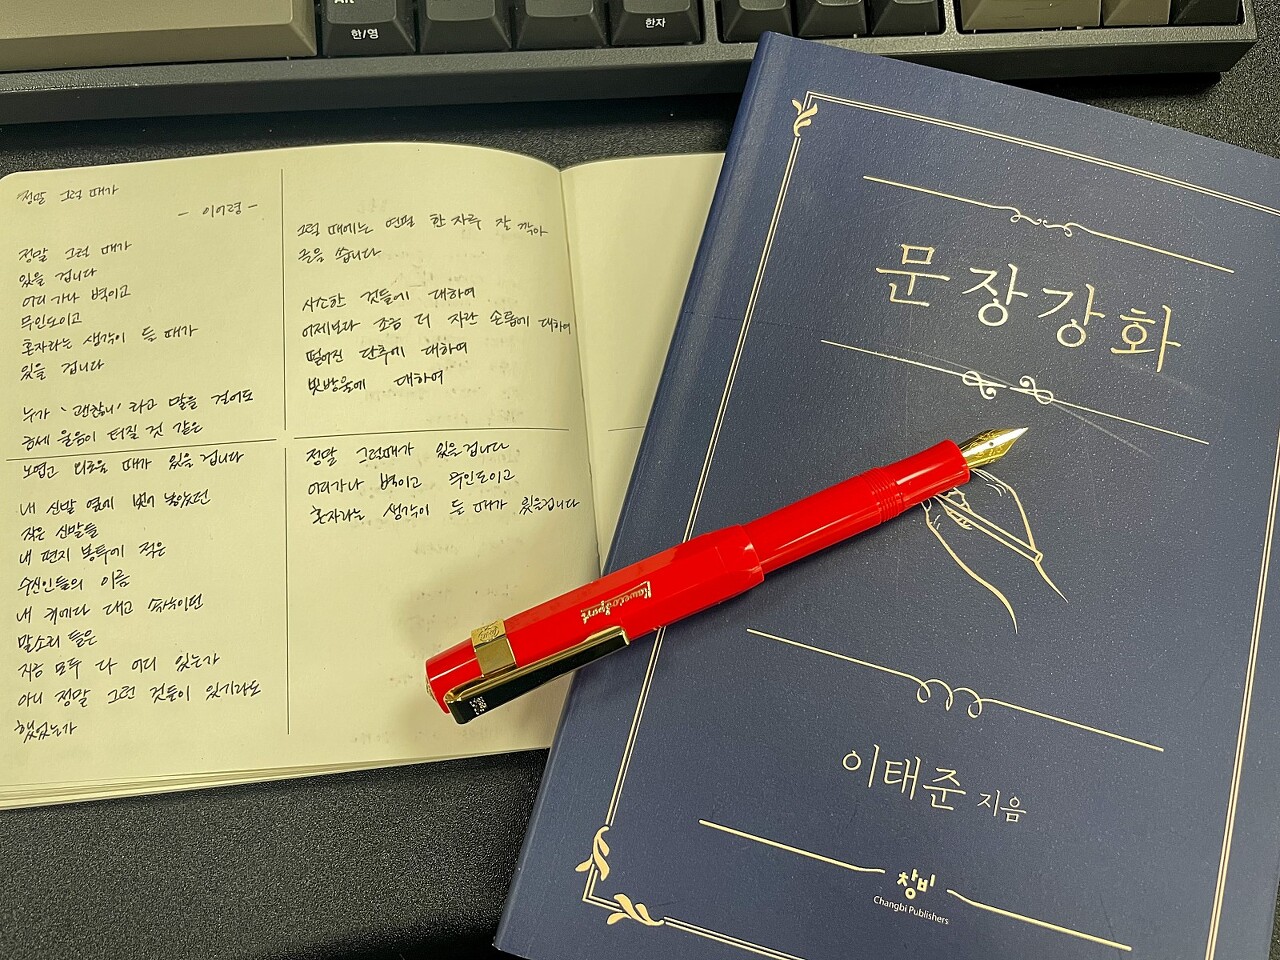 Alt
한/영
한자
정말 그럴 때가
- 이어령 -
정말 그럴 때가
있을 겁니다
어디 가나 벽이고
무인도이고
혼자라는 생각이 들 때가
있을 겁니다
누가 '괜찮니' 라고 말을 걸어도
금세 울음이 터질 것 같은
노엽고 외로울 때가 있을 겁니다
내 신발 옆에 벗어 놓았던
작은 신발들
내 편지 봉투에 적은
수신인들의 이름
내 귀에다 대고 속삭이던
말소리 들은
지금 모두 다 어디 있는가
아니 정말 그런 것들이 있기라도
했었는가
그럴 때에는 연필 한 자루 잘 깎아
글을 씁니다
사소한 것들에 대하여
어제보다 조금 더 자란 손톱에 대하여
떨어진 단추에 대하여
빗방울에 대하여
정말 그럴때가 있을겁니다
어디가나 벽이고 무인도이고
혼자라는 생각이 들 때가 있을겁니다
Kaweco Sport
문장강화
이태준 지음
창비
Changbi Publishers